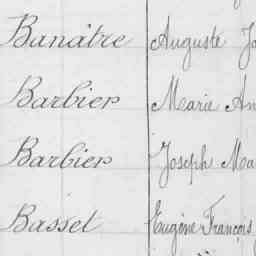 Banâtre Auguste
Barbier Marie
Barbier Joseph
Basset Eugène François